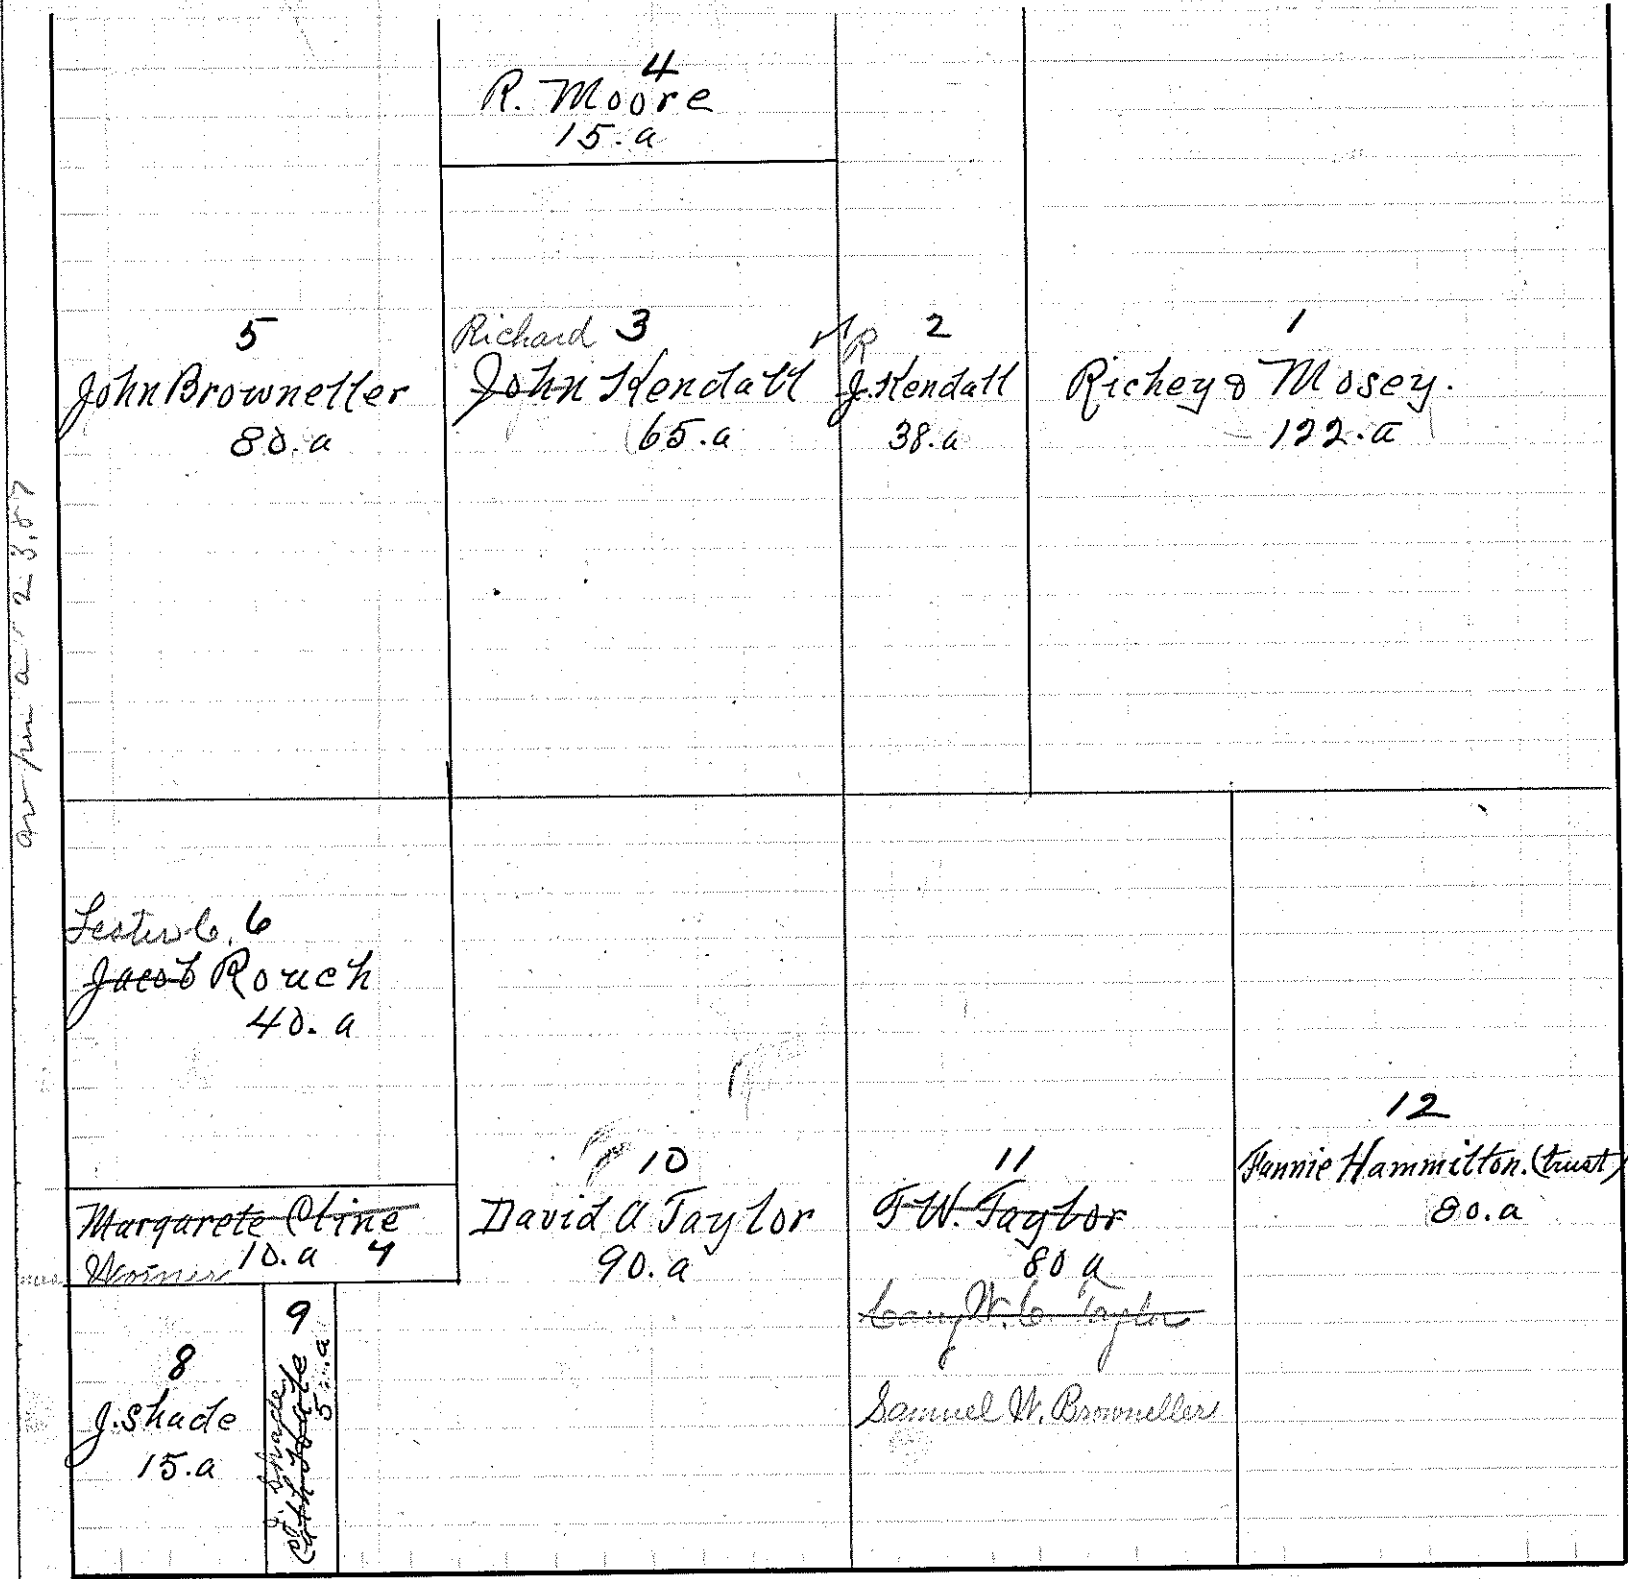 4
R. Moore
15.a
5
John Browneller
80.a
Richard 3
John Kendall
65.a
R 2
J. Kendall
38.a
1
Richey & Mosey.
122.a
6
Jacob Rouch
40. a
Margarete Cline
10.a
8
J. Shade
15.a
9
J. Shade
5.a
10
David A Taylor
90.a
11
T.W. Taylor
80 a
W. C. Taylor
Samuel W. Browneller
12
Fannie Hammilton. (trust)
80.a